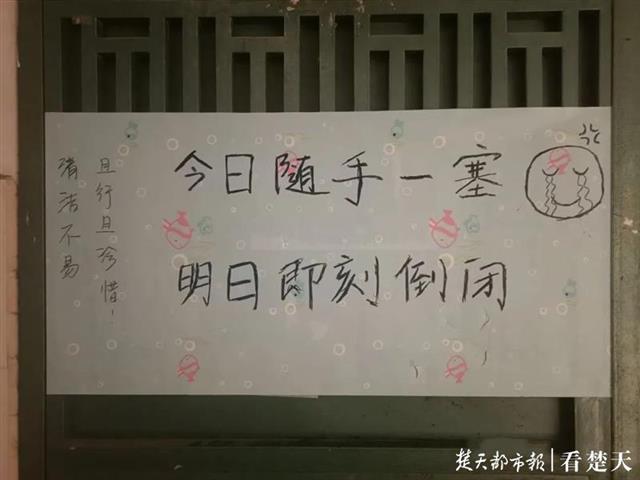 今日随手一塞
明日即刻倒闭
清洁不易
且行且珍惜！
楚天都市报|看楚天